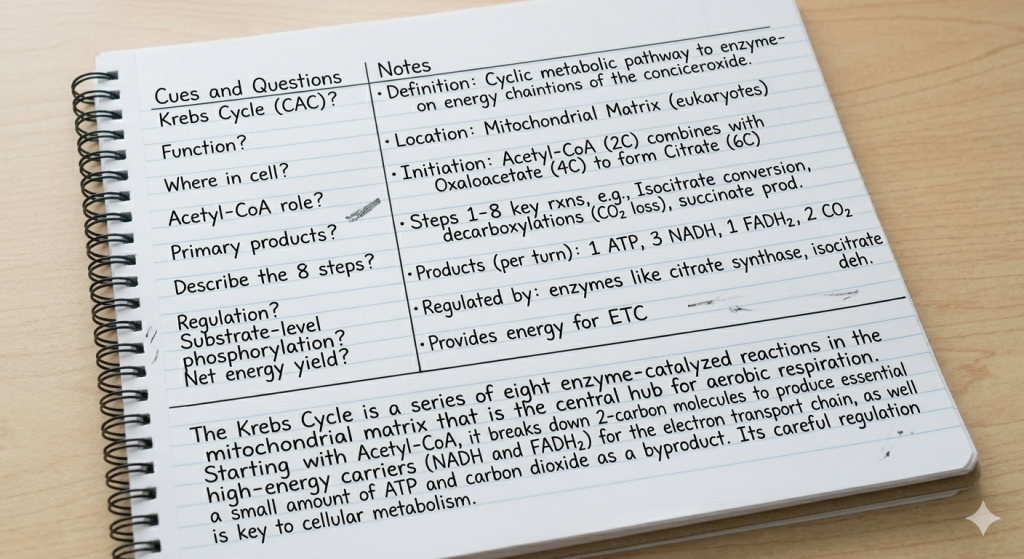 Cues and Questions
Krebs Cycle (CAC)?
Function?
Where in cell?
Acetyl-CoA role?
Primary products?
Describe the 8 steps?
Regulation?
Substrate-level
phosphorylation?
Net energy yield?
Notes
• Definition: Cyclic metabolic pathway to enzyme-
on energy chaintions of the conciceroxide.
• Location: Mitochondrial Matrix (eukaryotes)
• Initiation: Acetyl-CoA (2C) combines with
Oxaloacetate (4C) to form Citrate (6C)
• Steps 1-8 key rxns, e.g., Isocitrate conversion,
decarboxylations (CO₂ loss), succinate prod.
• Products (per turn): 1 ATP, 3 NADH, 1 FADH₂, 2 CO₂
• Regulated by: enzymes like citrate synthase, isocitrate
deh.
• Provides energy for ETC
The Krebs Cycle is a series of eight enzyme-catalyzed reactions in the
mitochondrial matrix that is the central hub for aerobic respiration.
Starting with Acetyl-CoA, it breaks down 2-carbon molecules to produce essential
high-energy carriers (NADH and FADH₂) for the electron transport chain, as well
a small amount of ATP and carbon dioxide as a byproduct. Its careful regulation
is key to cellular metabolism.